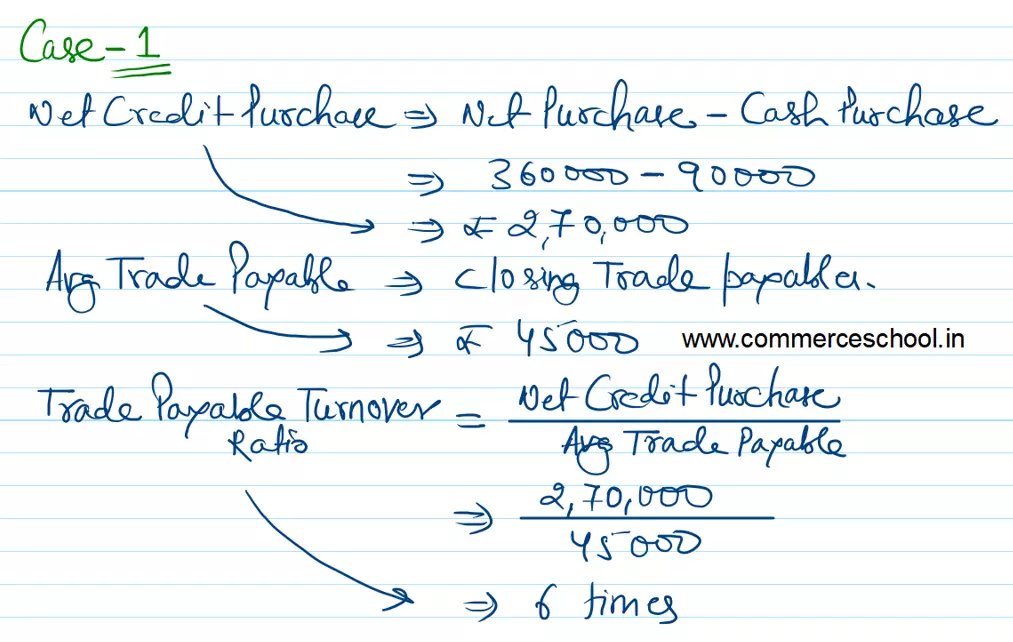 Case - 1
Net Credit Purchase ⇒ Net Purchase - Cash Purchase
⇒ 360000 - 90000
⇒ ₹ 2,70,000
Avg Trade Payable ⇒ Closing Trade payables.
⇒ ₹ 45000
www.commerceschool.in
Trade Payable Turnover Ratio = Net Credit Purchase
Avg Trade Payable
⇒ 2,70,000
45000
⇒ 6 times